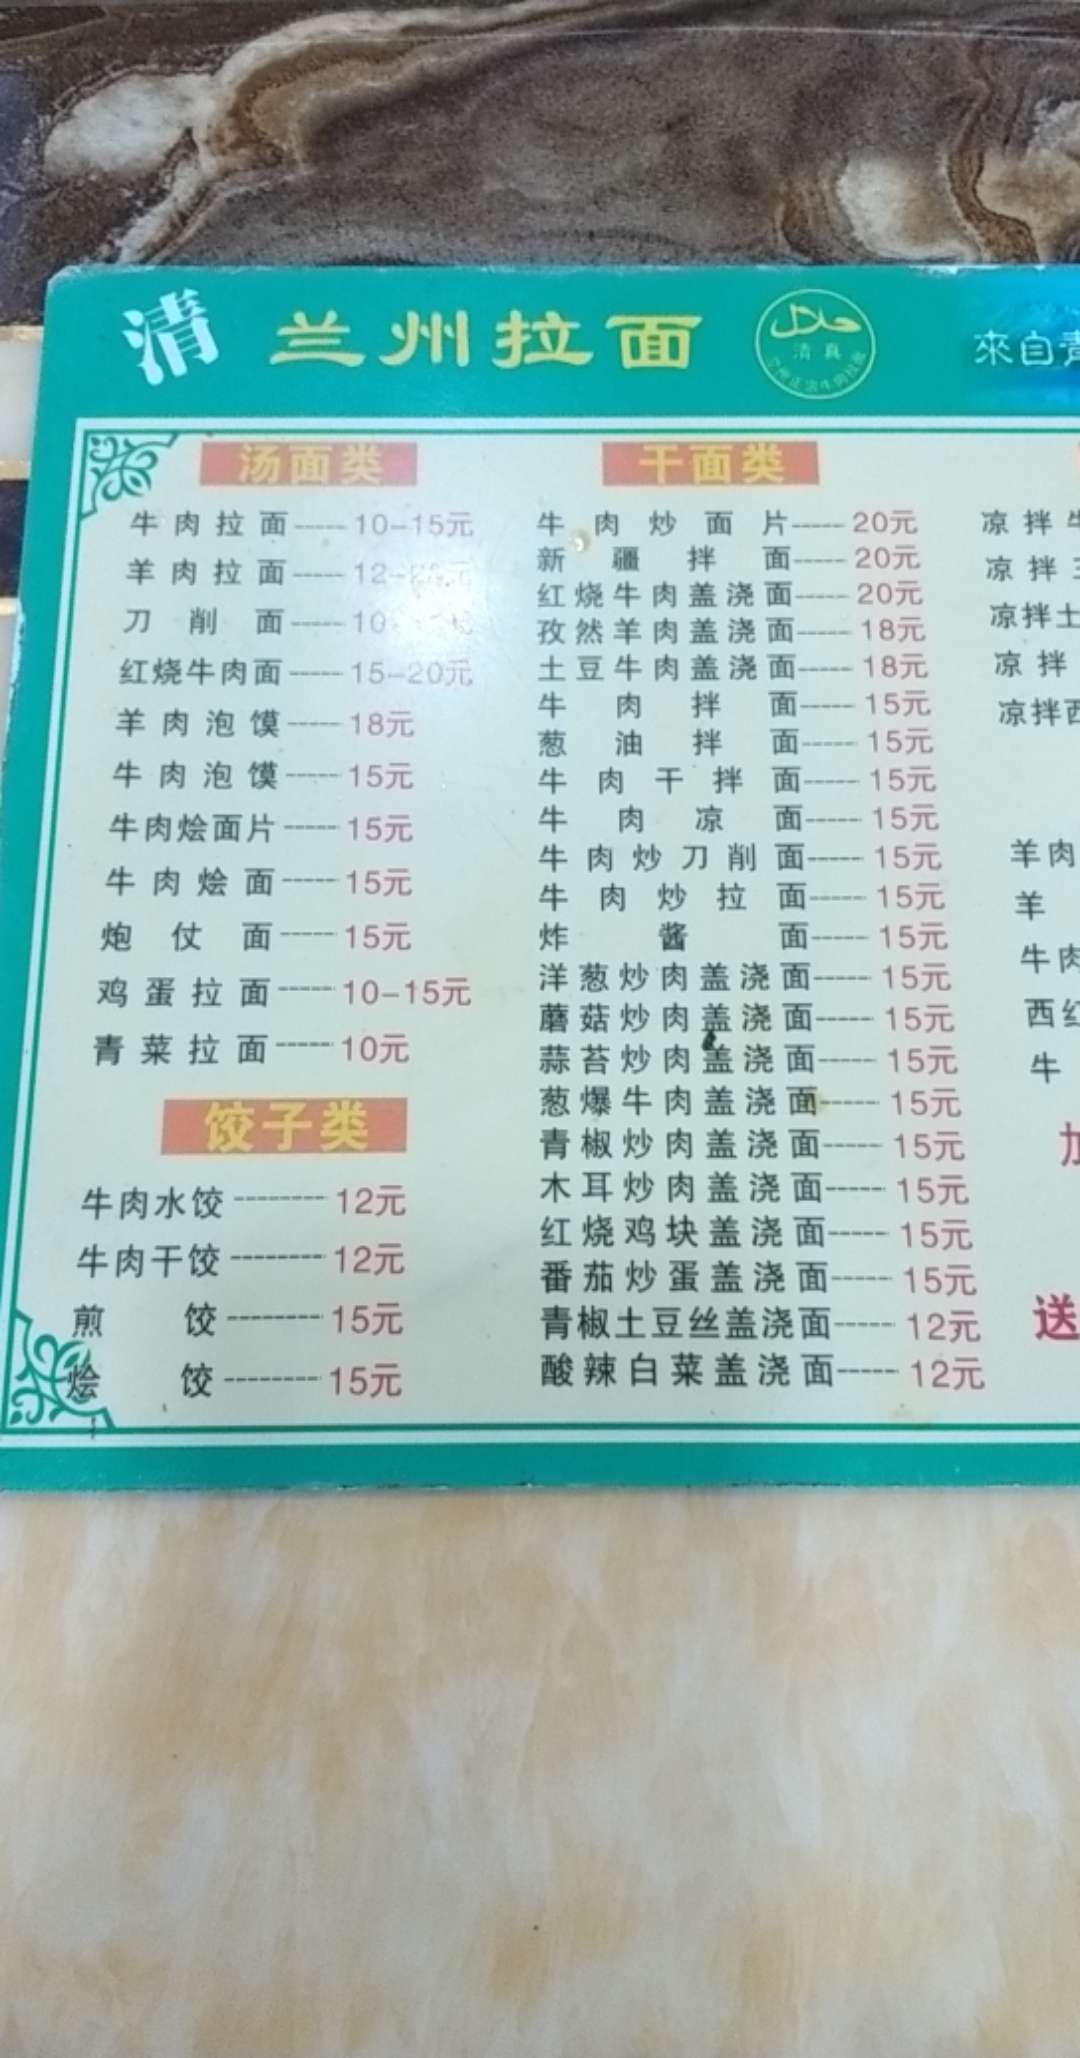 清 兰州拉面 清真 來自青
汤面类
牛肉拉面-----10-15元
羊肉拉面-----12-
刀削面-----10
红烧牛肉面-----15-20元
羊肉泡馍-----18元
牛肉泡馍-----15元
牛肉烩面片-----15元
牛肉烩面-----15元
炮仗面-----15元
鸡蛋拉面-----10-15元
青菜拉面-----10元
饺子类
牛肉水饺--------12元
牛肉干饺--------12元
煎饺--------15元
烩饺--------15元
干面类
牛肉炒面片-----20元
新疆拌面-----20元
红烧牛肉盖浇面-----20元
孜然羊肉盖浇面-----18元
土豆牛肉盖浇面-----18元
牛肉拌面-----15元
葱油拌面-----15元
牛肉干拌面-----15元
牛肉凉面-----15元
牛肉炒刀削面-----15元
牛肉炒拉面-----15元
炸酱面-----15元
洋葱炒肉盖浇面-----15元
蘑菇炒肉盖浇面-----15元
蒜苔炒肉盖浇面-----15元
葱爆牛肉盖浇面-----15元
青椒炒肉盖浇面-----15元
木耳炒肉盖浇面-----15元
红烧鸡块盖浇面-----15元
番茄炒蛋盖浇面-----15元
青椒土豆丝盖浇面-----12元
酸辣白菜盖浇面-----12元
凉拌牛
凉拌
凉拌土
凉拌
凉拌西
羊肉
羊
牛肉
西红
牛
加
送